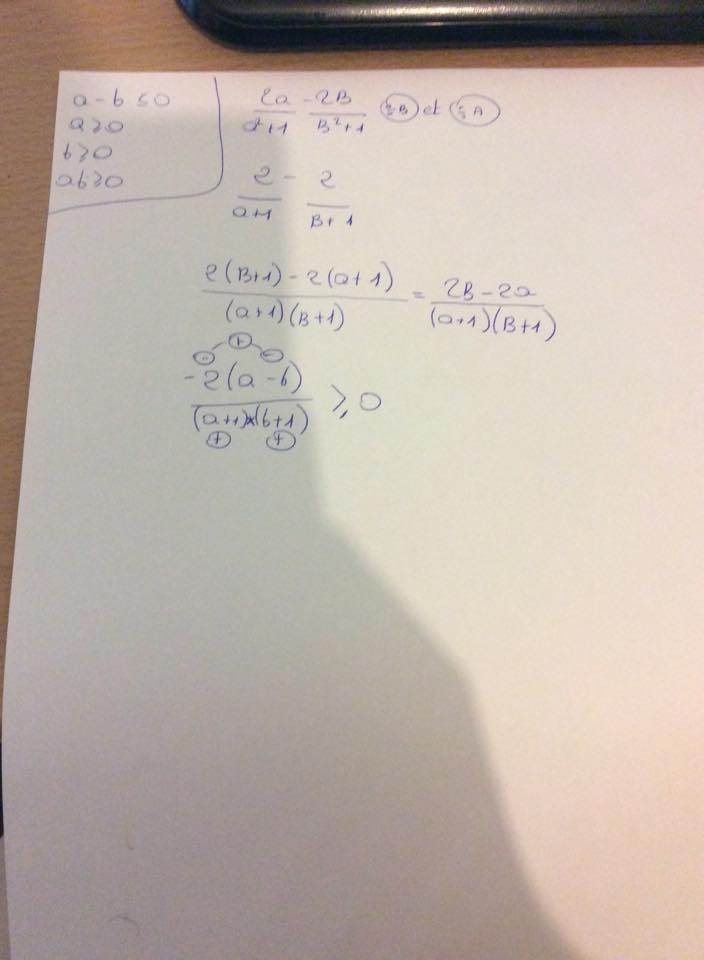 a - b ≤ 0
a ≥ 0
b ≥ 0
ab ≥ 0
2a/a²+1 - 2B/B²+1 et
2/a+1 - 2/B+1
2(B+1) - 2(a+1)/(a+1)(B+1) = 2B - 2a/(a+1)(B+1)
- + -
-2(a - b)/(a+1)×(b+1) ≥ 0
+ +